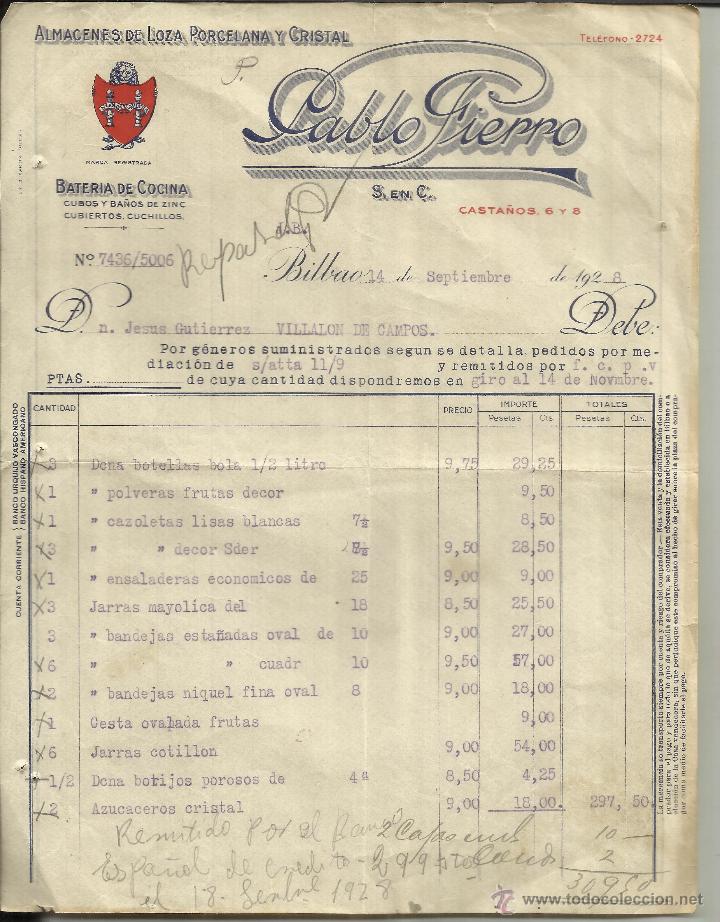 ALMACENES DE LOZA PORCELANA Y CRISTAL
TELÉFONO-2724
P.
MARCA REGISTRADA
Pablo Fierro
S. EN C.
BATERIA DE COCINA
CUBOS Y BAÑOS DE ZINC
CUBIERTOS, CUCHILLOS.
CASTAÑOS, 6 Y 8
J.B.
Nº 7436/5006
Bilbao 14 de Septiembre de 1928
D. n. Jesus Gutierrez VILLALON DE CAMPOS. Debe:
Por géneros suministrados segun se detalla, pedidos por me-
diación de s/atta 11/9 y remitidos por f. c. p .v
PTAS. de cuya cantidad dispondremos en giro al 14 de Novmbre.
CANTIDAD PRECIO IMPORTE TOTALES
Pesetas Cts. Pesetas Cts.
CUENTA CORRIENTE BANCO URQUIJO VASCONGADO
BANCO HISPANO AMERICANO
3 Dcna botellas bola 1/2 litro 9,75 29,25
1 " polveras frutas decor 9,50
1 " cazoletas lisas blancas 7½ 8,50
3 " " decor Sder 9,50 28,50
1 " ensaladeras economicos de 25 9,00 9,00
3 Jarras mayolica del 18 8,50 25,50
3 " bandejas estañadas oval de 10 9,00 27,00
6 " " cuadr 10 9,50 57,00
2 " bandejas niquel fina oval 8 9,00 18,00
1 Cesta ovalada frutas 9,00
6 Jarras cotillon 9,00 54,00
1/2 Dcna botijos porosos de 4ª 8,50 4,25
2 Azucaceros cristal 9,00 18,00. 297, 50.
Remitido por el Banco 10 —
Español de credito - 2
el 18 1928 30950
todocoleccion.net